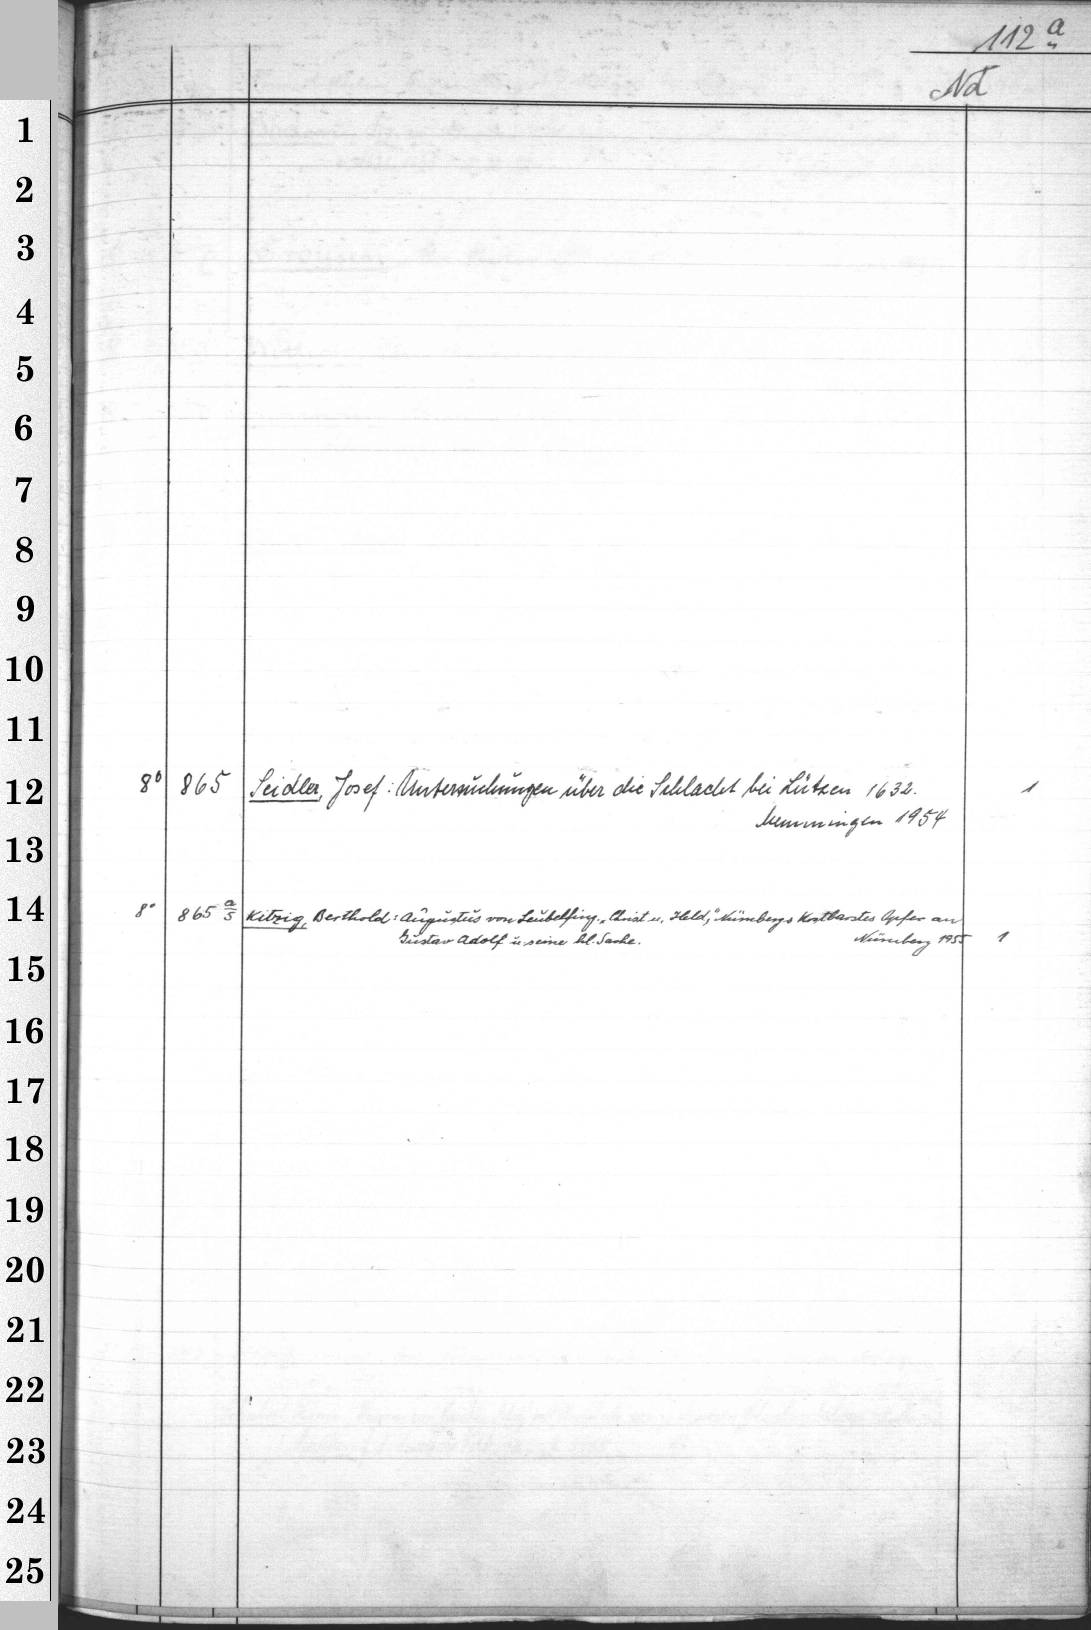 112 a
Nd
1
2
3
4
5
6
7
8
9
10
11
8° 865 Seidler, Josef: Untersuchungen über die Schlacht bei Lützen 1632. 1
12
Memmingen 1954
13
14
8° 865 a/5 Kitzig, Berthold: Augustus von Leubelfing. "Christ u. Held," Nürnbergs kostbarstes Opfer an
Gustav Adolf u. seine hl. Sache. Nürnberg 1955 1
15
16
17
18
19
20
21
22
23
24
25